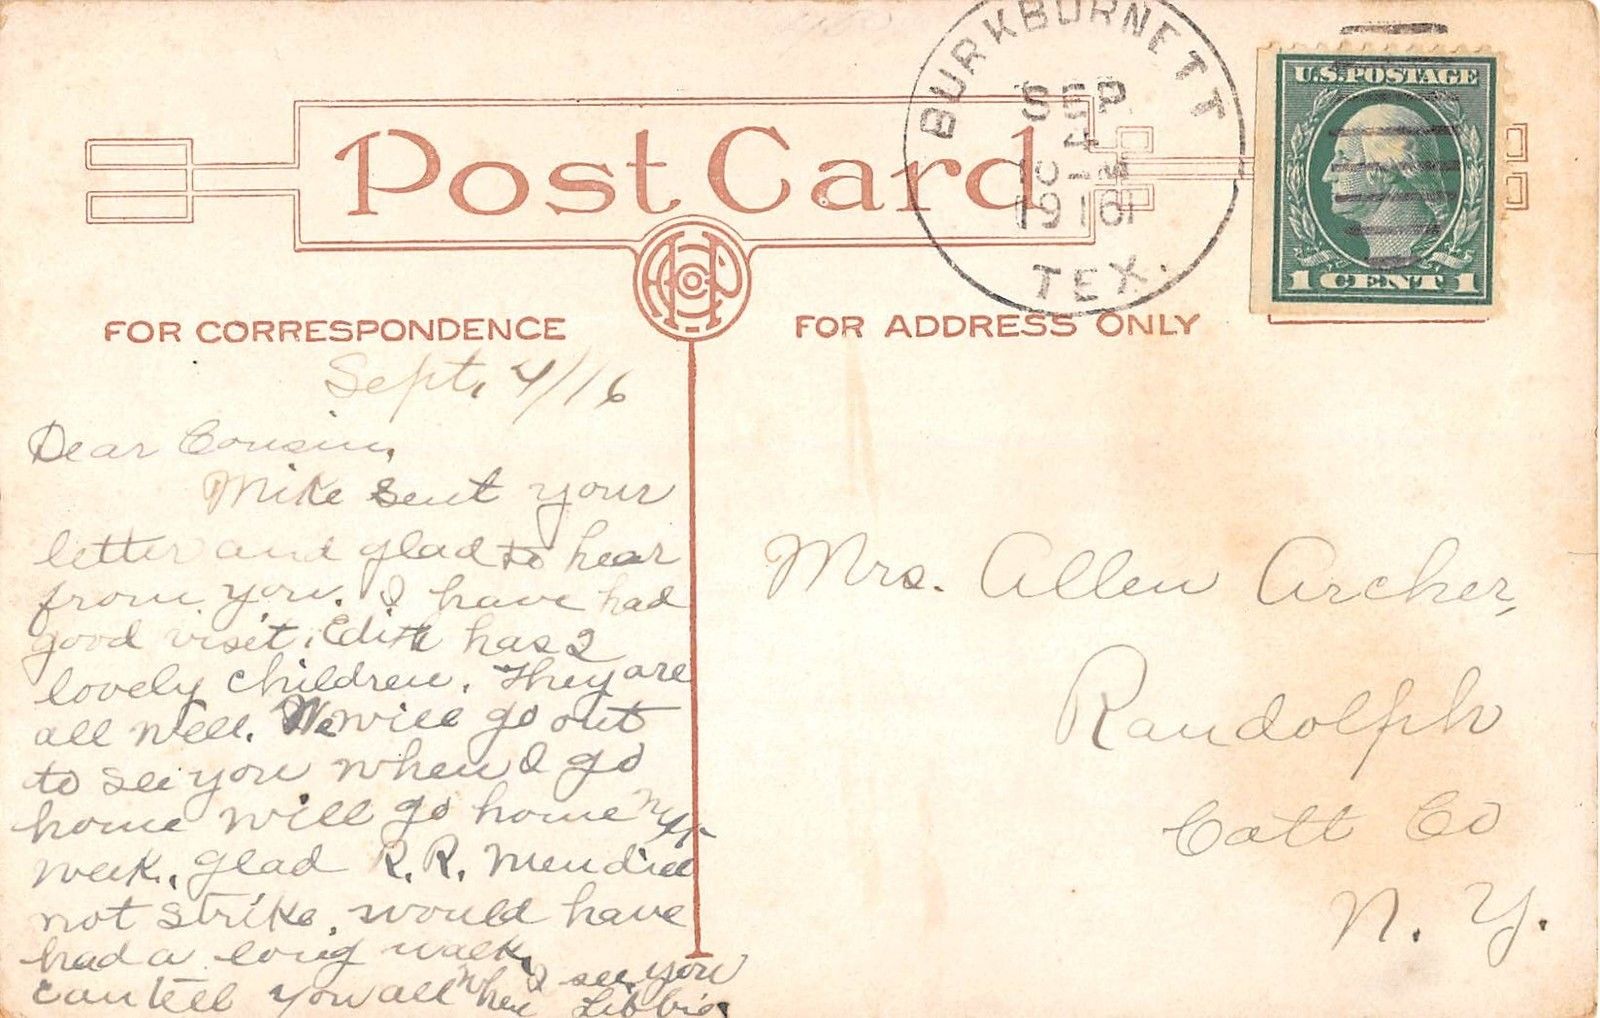 BURKBURNETT
SEP
4
10
1916
TEX.
U.S. POSTAGE
1 CENT 1
Post Card
FOR CORRESPONDENCE
FOR ADDRESS ONLY
Sept, 4/16
Dear Cousin,
Mike sent your
letter and glad to hear
from you. I have had
good visit, Edith has 2
lovely children. They are
all well. We will go out
to see you when I go
home will go home nxt
week. glad R.R. men did
not strike, would have
had a long walk,
can tell you all when I see you
Libbie
Mrs. Allen Archer,
Randolph
Catt Co
N. Y.